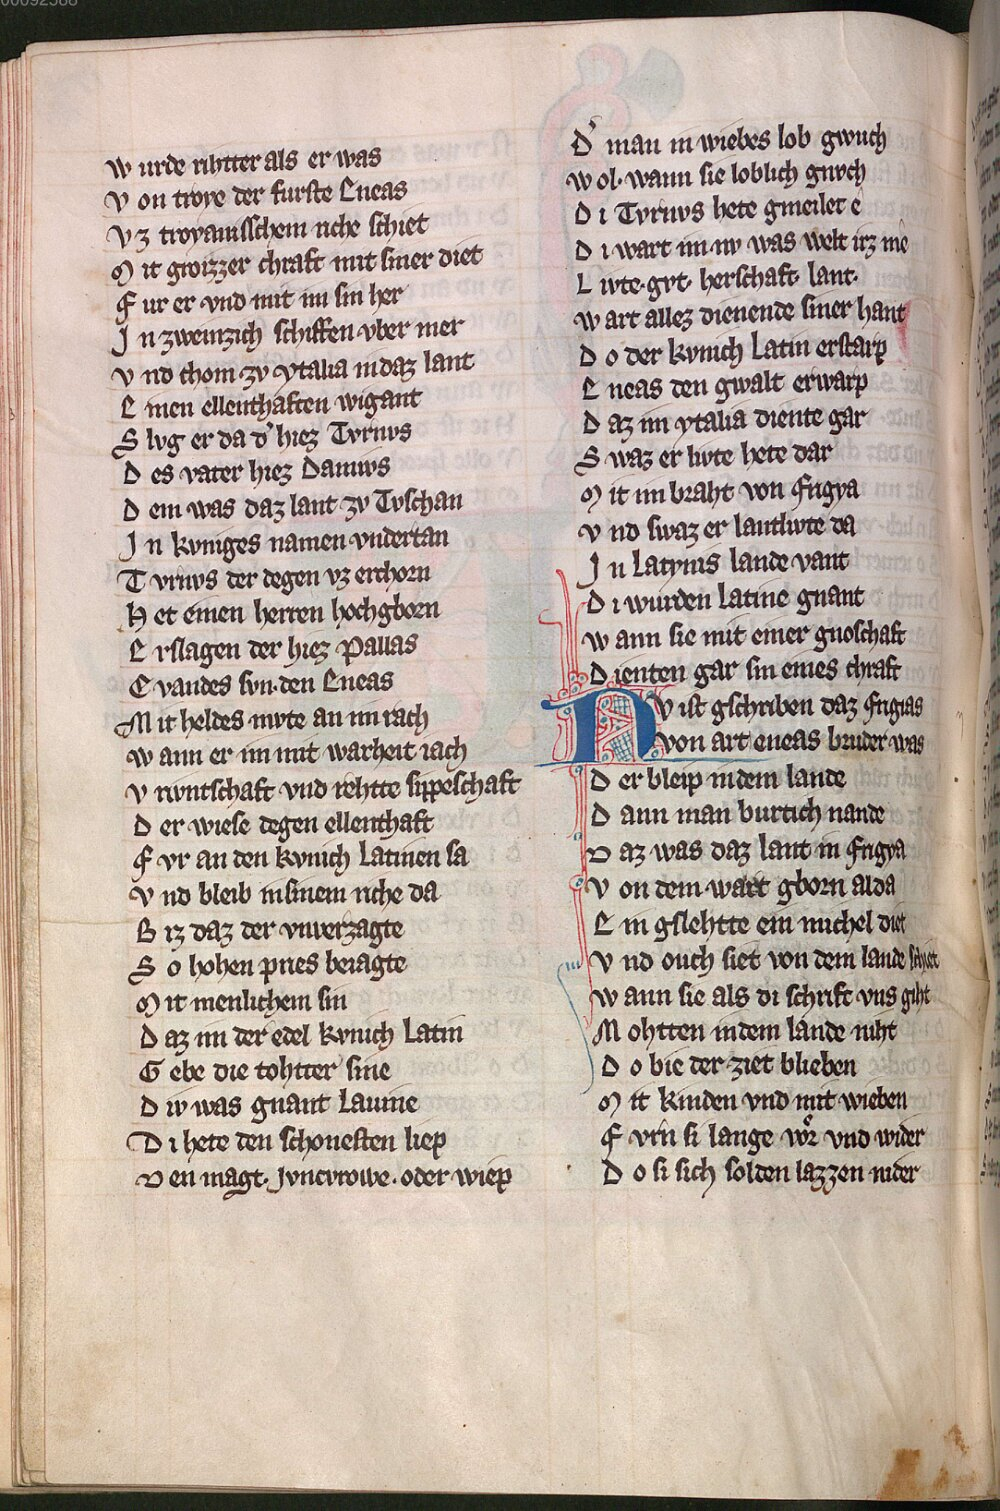 00092588
W urde rihtter als er was
V on troye der furste Eneas
V z troyanisschem riche schiet
M it groizzer chraft mit siner diet
F ur er vnd mit im sin her
I n zweinzich schiffen vber mer
V nd chom zv ytalia indaz lant
E inen ellenthaften wigant
S lvg er da d' hiez Tvrnvs
D es vater hiez Dannvs
D em was daz lant zv Tvschan
I n kvniges namen vndertan
T vrnvs der degen vz erchorn
H et einen herren hochgborn
E rslagen der hiez Pallas
E vandes svn·den Eneas
M it heldes mvte an im rach
W ann er im mit warheit iach
V rivntschaft vnd rehtte sippeschaft
D er wiese degen ellenthaft
F vr an den kvnich Latinen sa
V nd bleib in sinem riche da
B iz daz der vnverzagte
S o hohen pries beiagte
M it menlichem sin
D az im der edel kvnich Latin
G ebe die tohtter sine
D iv was gnant Lauine
D i hete den schonesten liep
D en magt· Jvncvrowe·oder wiep
D' man in wiebes lob gwuch
W ol·wann sie loblich gnvch
D i Tvrnvs hete gmeilet e
D i wart im·nv was welt irz me
L ivte·gvt· herschaft· lant·
W art allez dienende siner hant
D o der kvnich Latin erstarp
E neas den gwalt erwarp
D az im ytalia diente gar
S waz er livte hete dar
M it im braht von frigya
V nd swaz er lantlivte da
I n Latynis lande vant
D i wurden Latine gnant
W ann sie mit einer gnoschaft
D ienten gar sin eines chraft
N v ist gschriben daz frigias
von art eneas bruder was
D er bleip indem lande
D ann man burtich nande
D az was daz lant in frigya
V on dem wart gborn alda
E in gslehtte ein michel diet
V nd ouch siet von dem lande schiet
W ann sie als di schrift vns giht
M ohtten indem lande niht
D o bie der ziet blieben
M it kinden vnd mit wieben
F vrn si lange vor vnd wider
D o si sich solden lazzen nider